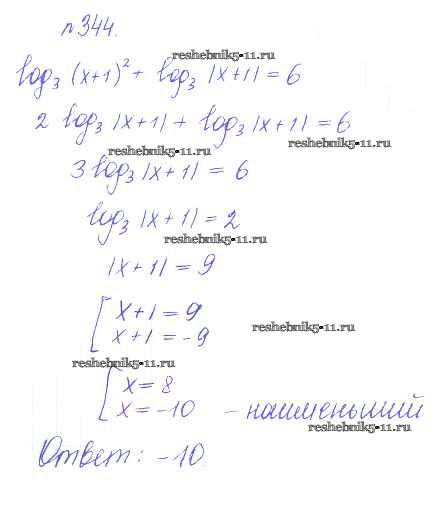 №344.
reshebnik5-11.ru
log₃ (x+1)² + log₃ |x+1| = 6
2 log₃ |x+1| + log₃ |x+1| = 6
reshebnik5-11.ru
reshebnik5-11.ru
3 log₃ |x+1| = 6
log₃ |x+1| = 2
reshebnik5-11.ru
|x+1| = 9
[ x+1 = 9
reshebnik5-11.ru
x+1 = -9
reshebnik5-11.ru
[ x = 8
x = -10 - наименьший
reshebnik5-11.ru
Ответ: -10